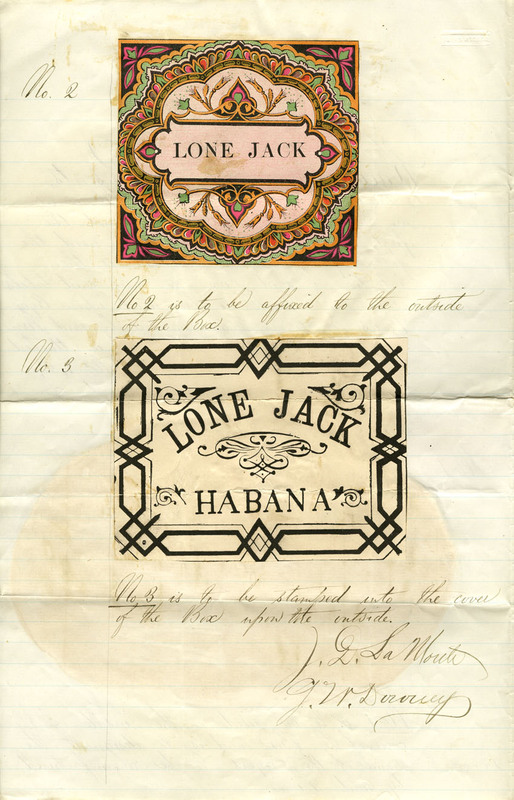 No. 2
LONE JACK
No 2 is to be affixed to the outside
of the Box.
No. 3
LONE JACK
HABANA
No 3 is to be stamped into the cover
of the Box upon the outside.
J. D. La Monte
J. W. Downey